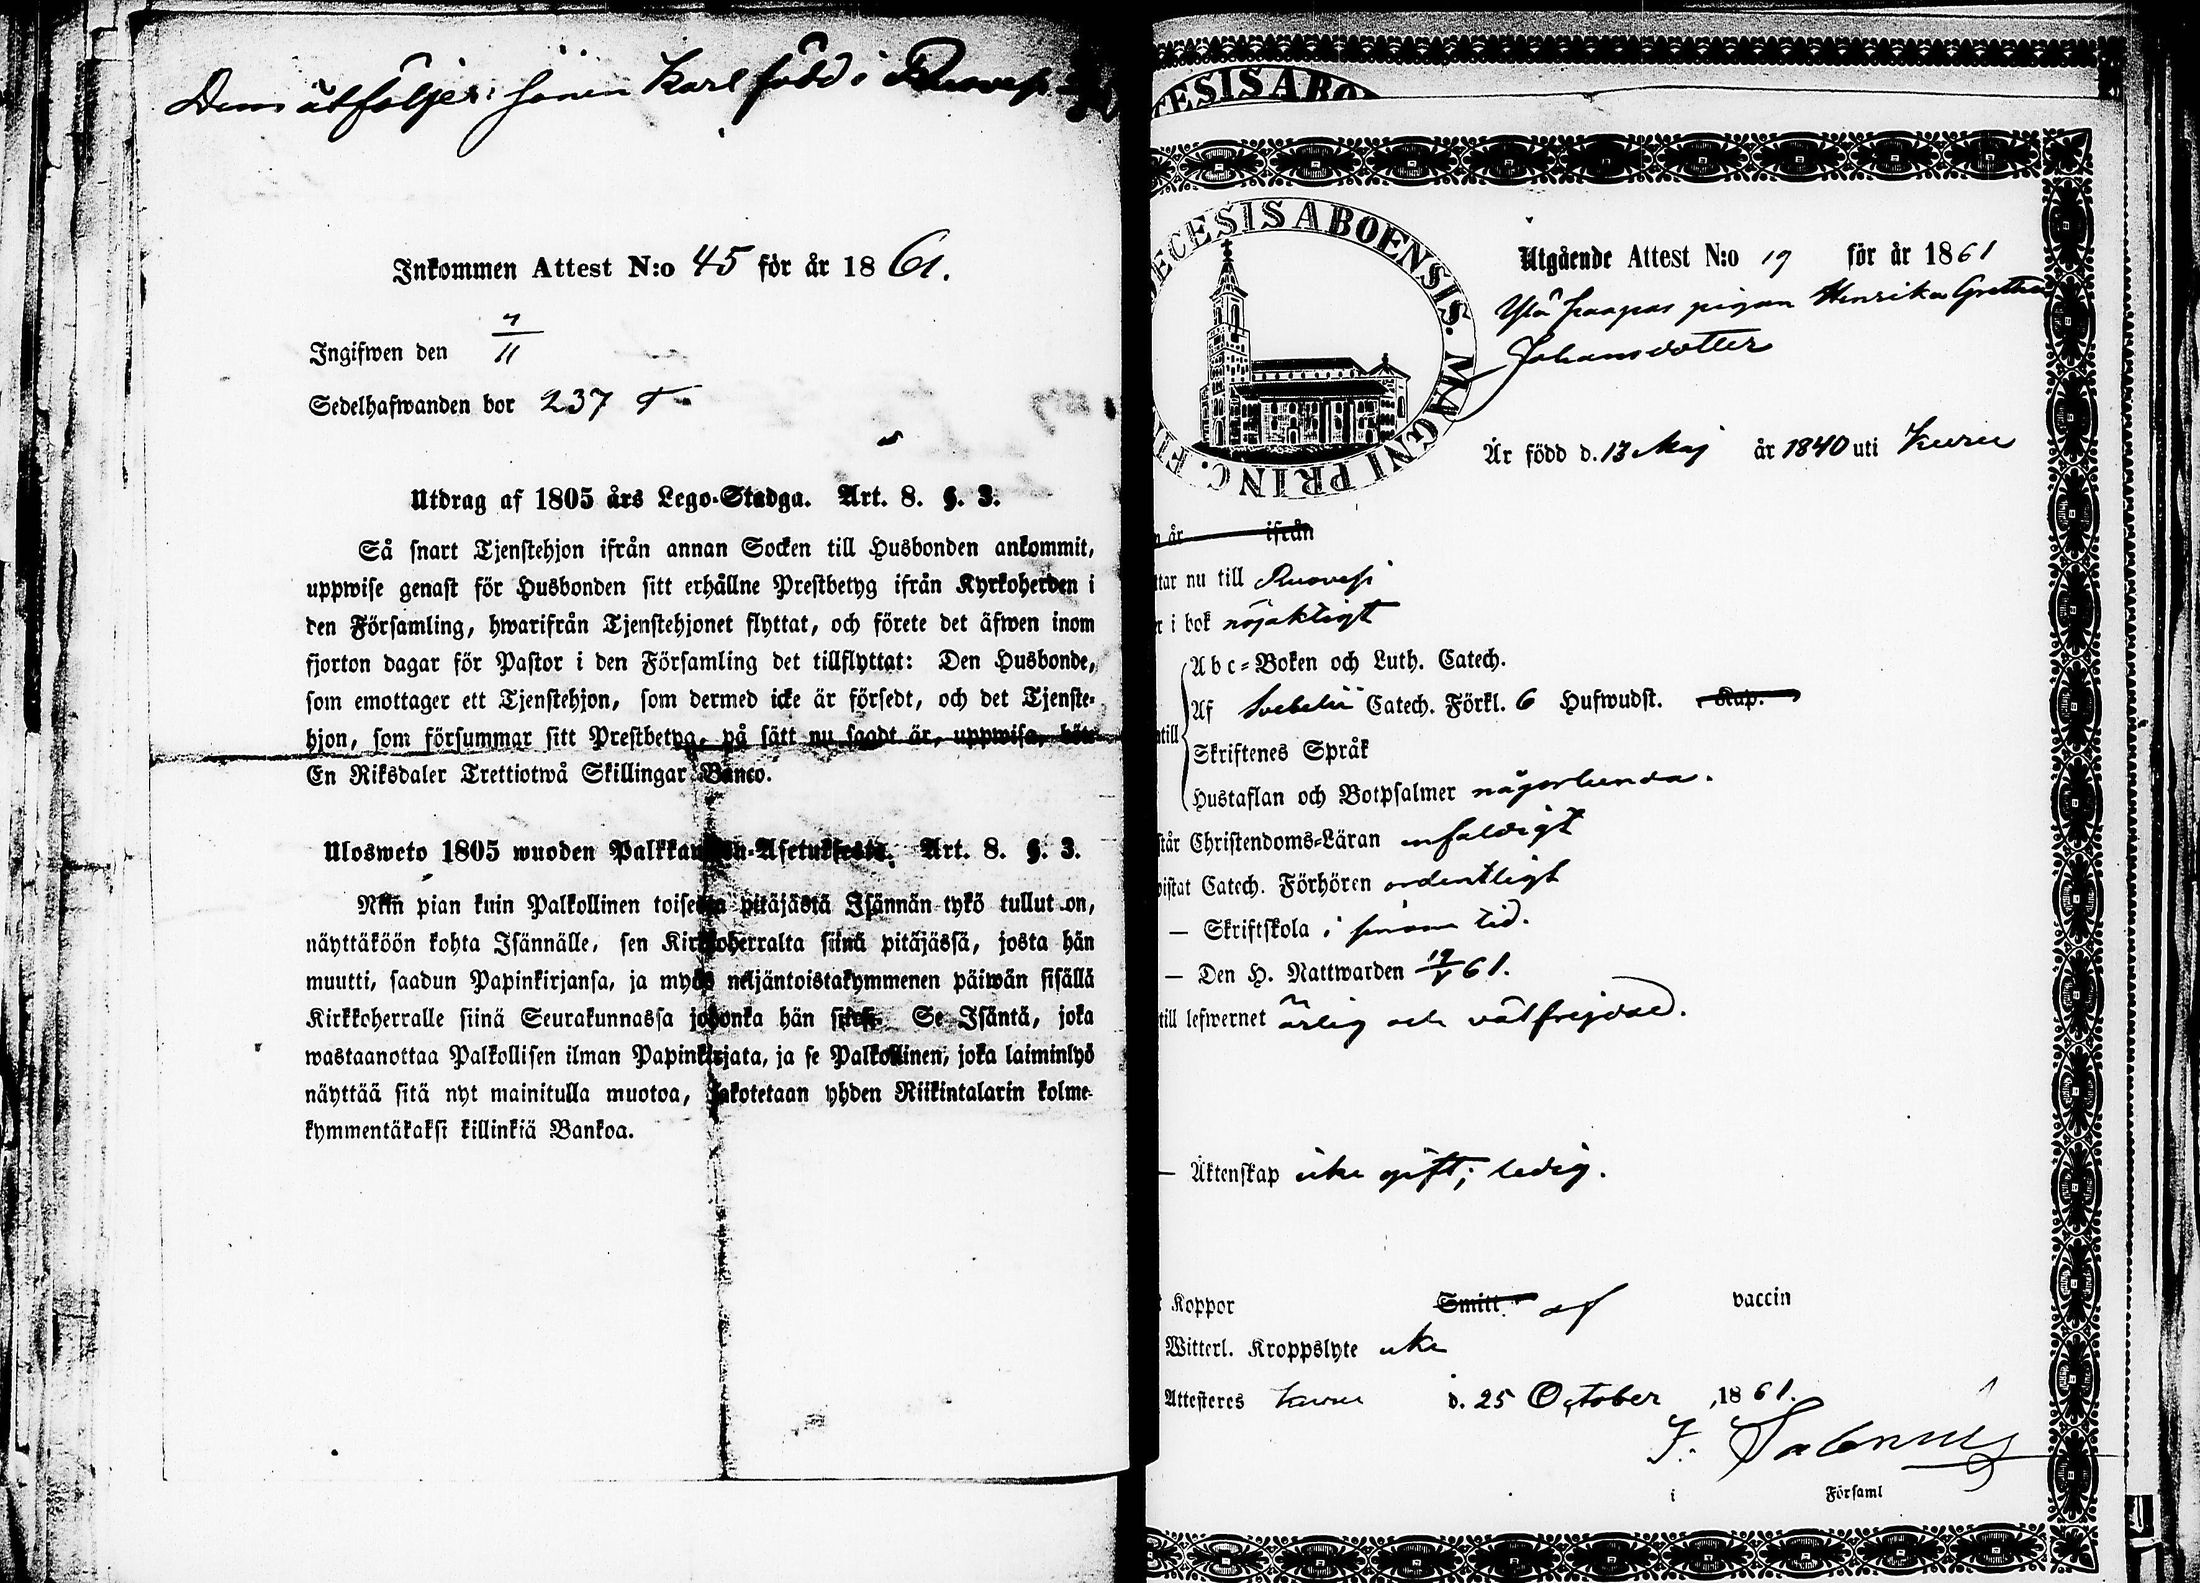 Dem åtföljer sonen Karl född i Ruovesi
Inkommen Attest N:o 45 för år 1861.
Ingifwen den 7/11
Sedelhafwanden bor 237
Utdrag af 1805 års Lego-Stadga. Art. 8. §. 3.
Så snart Tjenstehjon ifrån annan Socken till Husbonden ankommit,
uppwise genast för Husbonden sitt erhållne Prestbetyg ifrån Kyrkoherden i
den Församling, hwarifrån Tjenstehjonet flyttat, och förete det äfwen inom
fjorton dagar för Pastor i den Församling det tillflyttat: Den Husbonde,
som emottager ett Tjenstehjon, som dermed icke är försedt, och det Tjenste-
hjon, som försummar sitt Prestbetyg, på sätt nu sagdt är, uppwisa, böte
En Riksdaler Trettiotwå Skillingar Banco.
Ulosweto 1805 wuoden Palkkauksen-Asetuksesta. Art. 8. §. 3.
Niin pian kuin Palkollinen toisesta pitäjästä Isännän tykö tullut on,
näyttäköön kohta Isännälle, sen Kirkkoherralta siinä pitäjässä, josta hän
muutti, saadun Papinkirjansa, ja myös neljäntoistakymmenen päiwän sisällä
Kirkkoherralle siinä Seurakunnassa johonka hän siirsi. Se Isäntä, joka
wastaanottaa Palkollisen ilman Papinkirjata, ja se Palkollinen, joka laiminlyö
näyttää sitä nyt mainitulla muotoa, sakotetaan yhden Riikintalarin kolme-
kymmentäkaksi killinkiä Bankoa.
ECESIS ABO
ECESIS ABOENSIS. MAGNI PRINC. FI
Utgående Attest N:o 19 för år 1861
pigan Henrika Gretha
Johansdotter
Är född d. 13 Maj år 1840 uti Kuru
år ifrån
ttar nu till Ruovesi
r i bok nöjaktigt
Abc-Boken och Luth. Catech.
Af Svebelii Catech. Förkl. 6 Hufwudst. Kap.
till
Skriftenes Språk
Hustaflan och Botpsalmer någorlunda.
står Christendoms-Läran enfaldigt
wistat Catech. Förhören ordentligt
— Skriftskola i sinom tid.
— Den H. Nattwarden 19/5 61.
till lefwernet ärlig och välfrejdad.
— Äktenskap icke gift; ledig.
Koppor Smitt. af vaccin
Witterl. Kroppslyte icke
Attesteres Kuru d. 25 October 1861.
i Församl